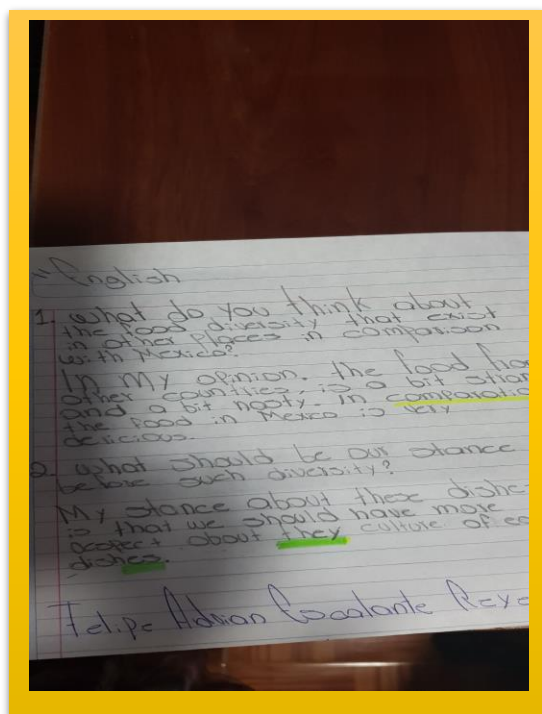 "English
1. What do you think about
the food diversity that exist
in other places in comparison
with Mexico?
In my opinion, the food
other countries, is a bit
and a bit nasty. In
the food in Mexico is very
delicious.
2. What should be our stance
before such diversity?
My stance about these
is that we should have more
about they culture of
dishes.
Felipe Adrian Escalante